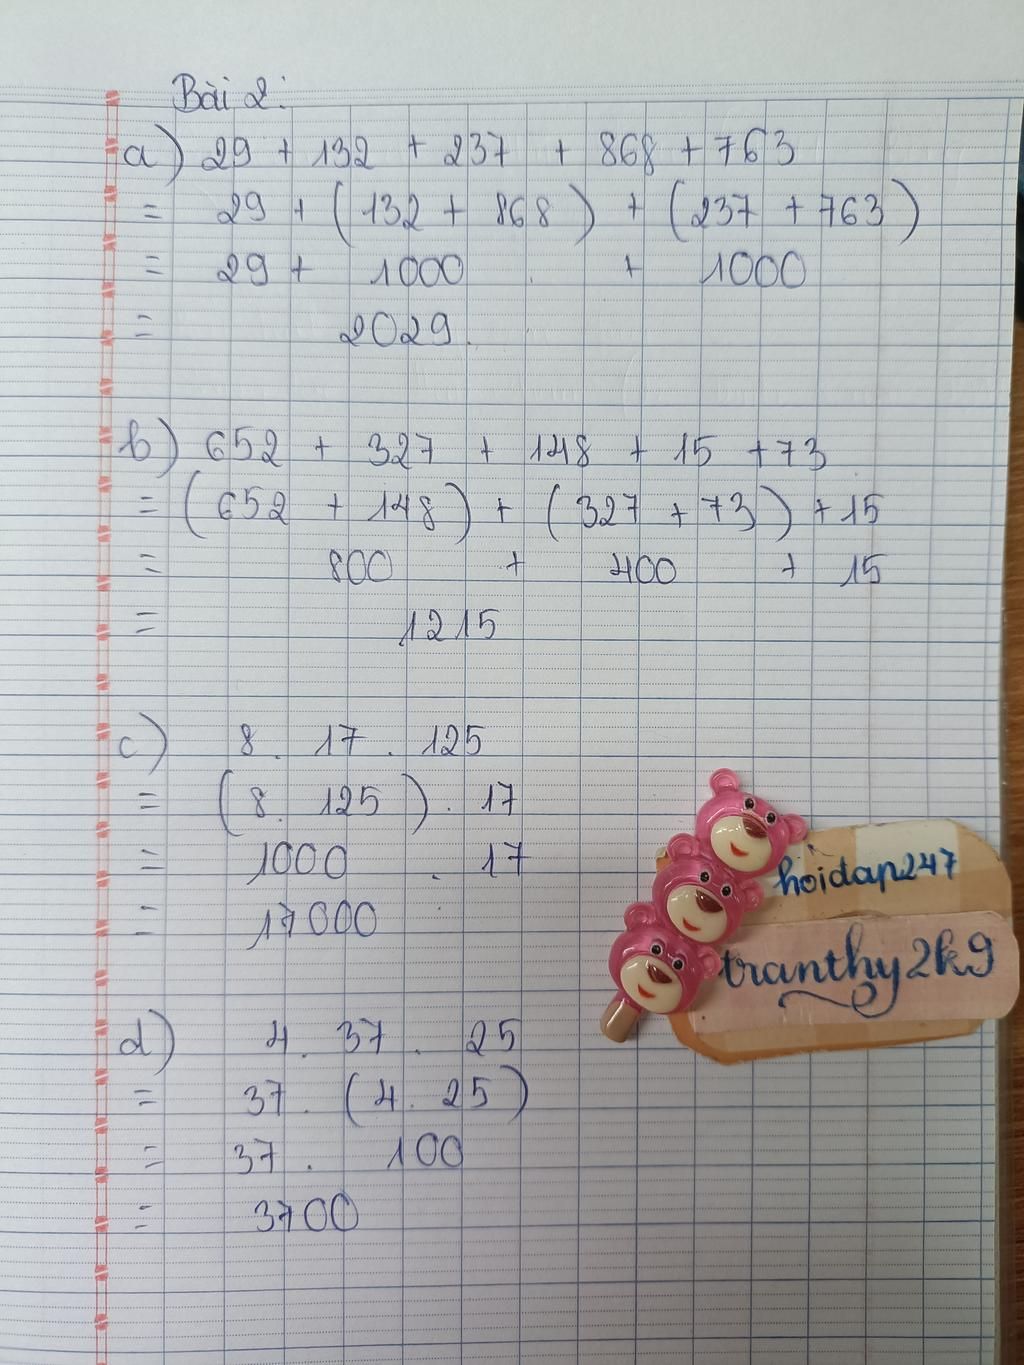 Bài 2:
a) 29 + 132 + 237 + 868 + 763
= 29 + (132 + 868) + (237 + 763)
= 29 + 1000 + 1000
= 2029.
b) 652 + 327 + 148 + 15 + 73
= (652 + 148) + (327 + 73) + 15
= 800 + 400 + 15
= 1215
c) 8 . 17 . 125
= (8 . 125) . 17
= 1000 . 17
= 17000
hoidap247
tranthy2k9
d) 4 . 37 . 25
= 37 . (4 . 25)
= 37 . 100
= 3700